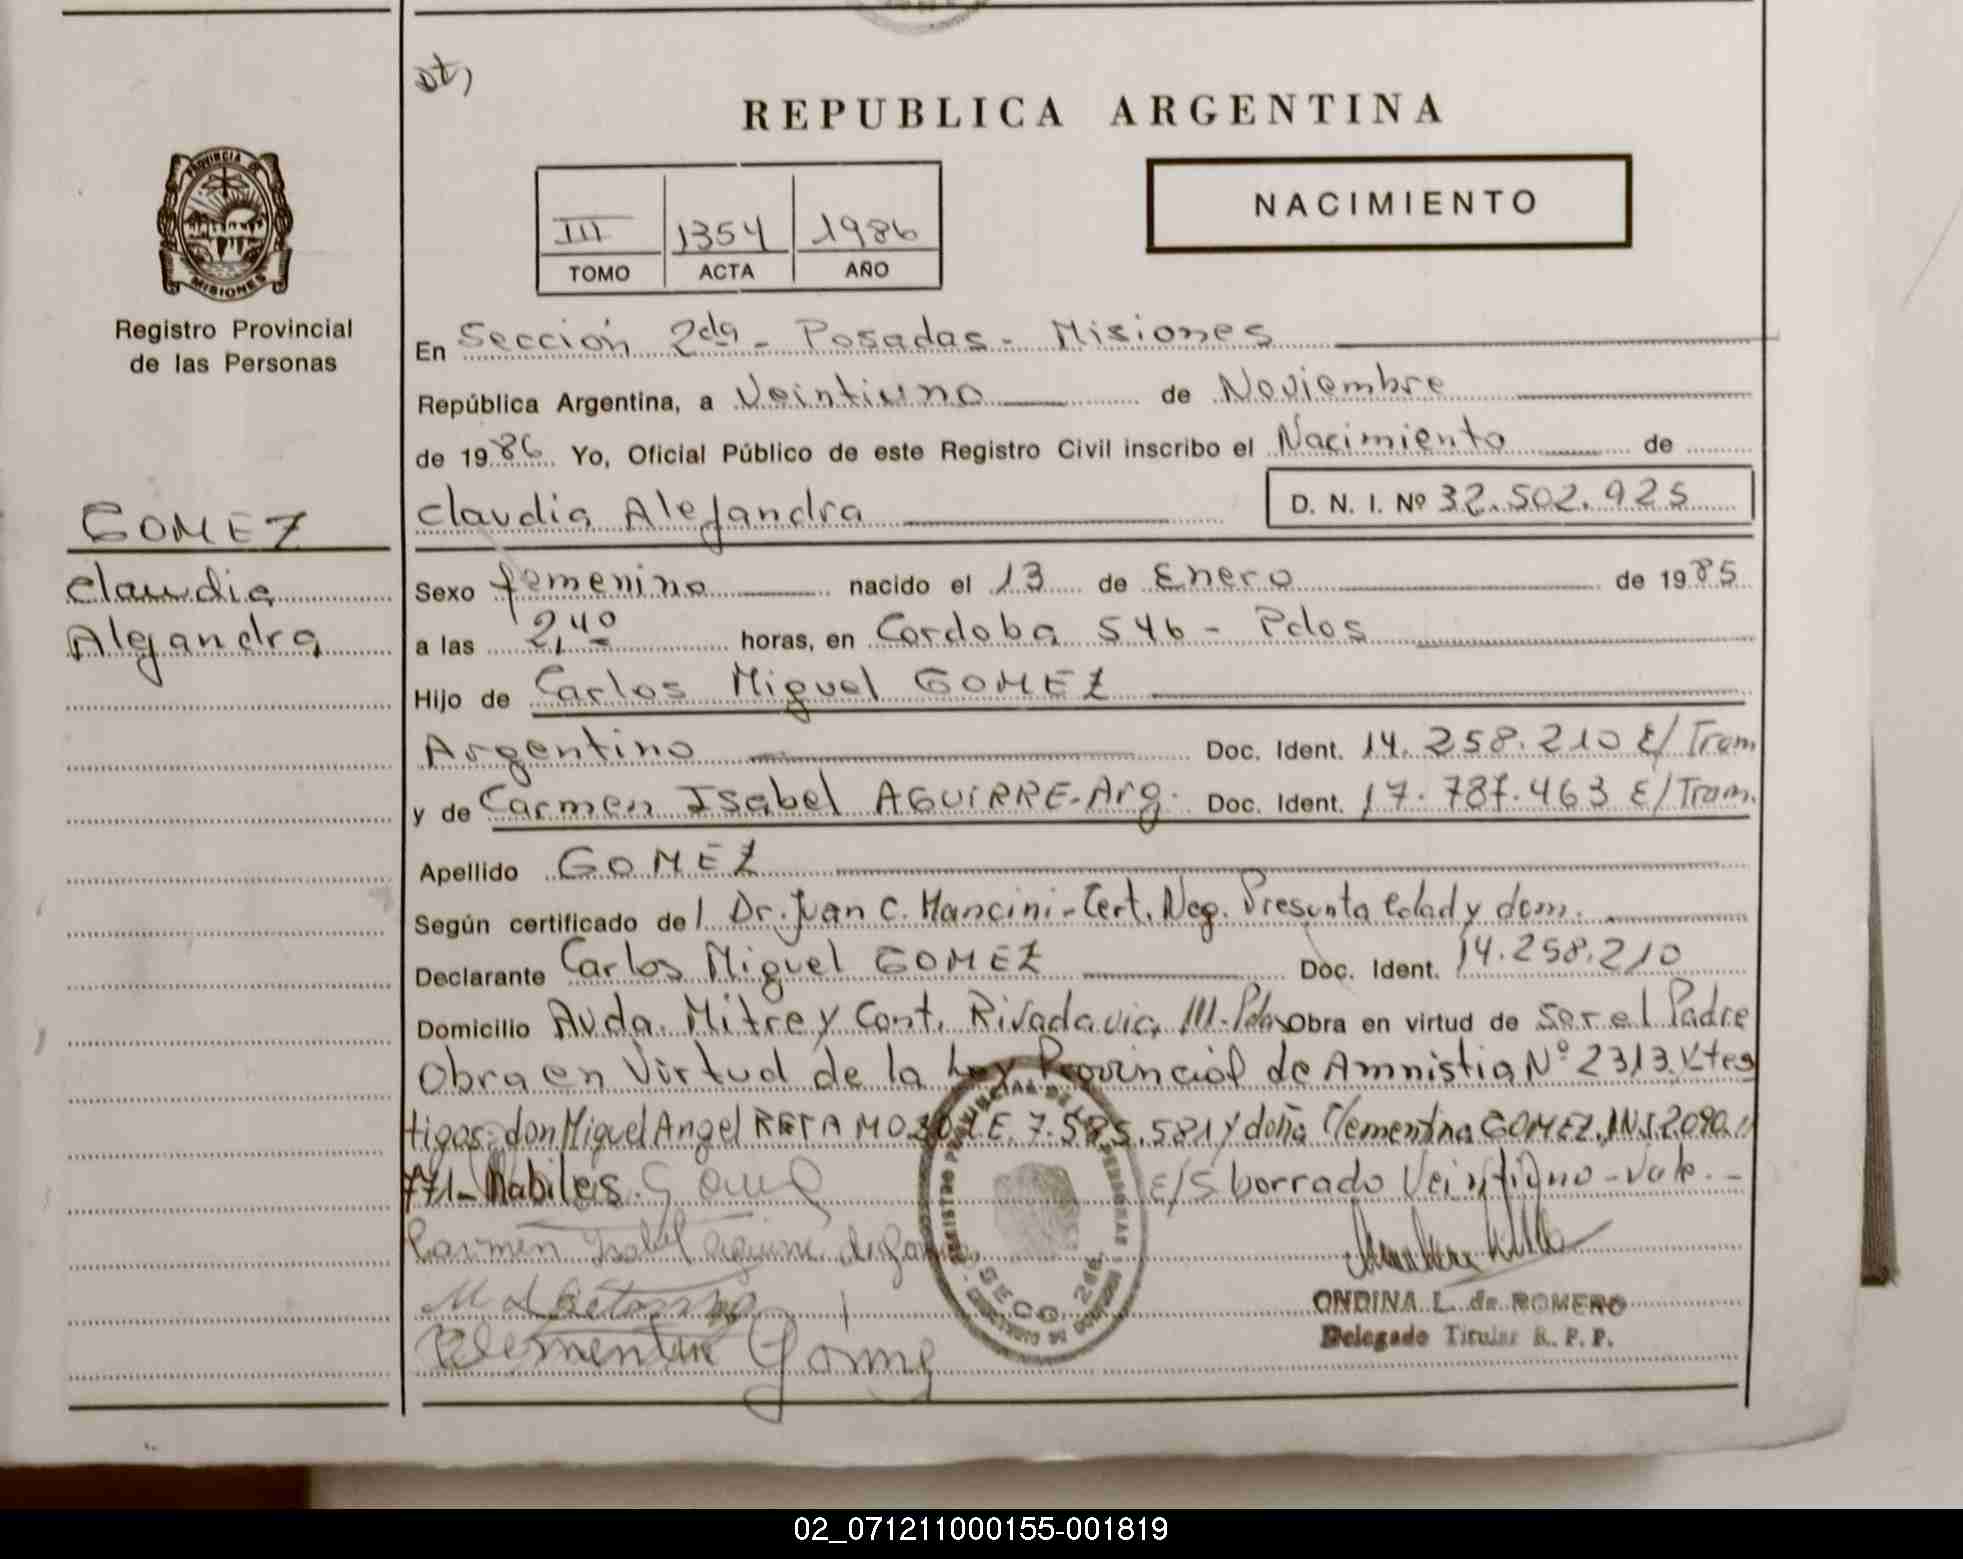 REPUBLICA ARGENTINA
PROVINCIA DE
MISIONES
Registro Provincial
de las Personas
III 1354 1986
TOMO ACTA AÑO
NACIMIENTO
En Sección 2da - Posadas - Misiones
República Argentina, a Veintiuno de Noviembre
de 1986 Yo, Oficial Público de este Registro Civil inscribo el Nacimiento de
GOMEZ
Claudia
Alejandra
Claudia Alejandra D. N. I. Nº 32.502.925
Sexo femenino nacido el 13 de Enero de 1985
a las 2,40 horas, en Cordoba 546 - Pdas
Hijo de Carlos Miguel GOMEZ
Argentino Doc. Ident. 14.258.210 E/Tram
y de Carmen Isabel AGUIRRE-Arg. Doc. Ident. 17.787.463 E/Tram.
Apellido GOMEZ
Según certificado del Dr. Juan C. Mancini-Cert. Neg. Presunta Edad y dom.
Declarante Carlos Miguel GOMEZ Doc. Ident. 14.258.210
Domicilio Avda. Mitre y Cont. Rivadavia Obra en virtud de Ser el Padre
Obra en Virtud de la Ley Provincial de Amnistia Nº 2313. y tes
tigos: don Miguel Angel RETAMOZO L.E. 7.585.581 y doña Clementina GOMEZ, 2.090.
771- habiles. E/S borrado Veintiuno - Vale. -
Carmen Isabel Aguirre de
Clementina Gómez
SECC 2da.
ONDINA L. de ROMERO
Delegado Titular R. P. P.
02_071211000155-001819